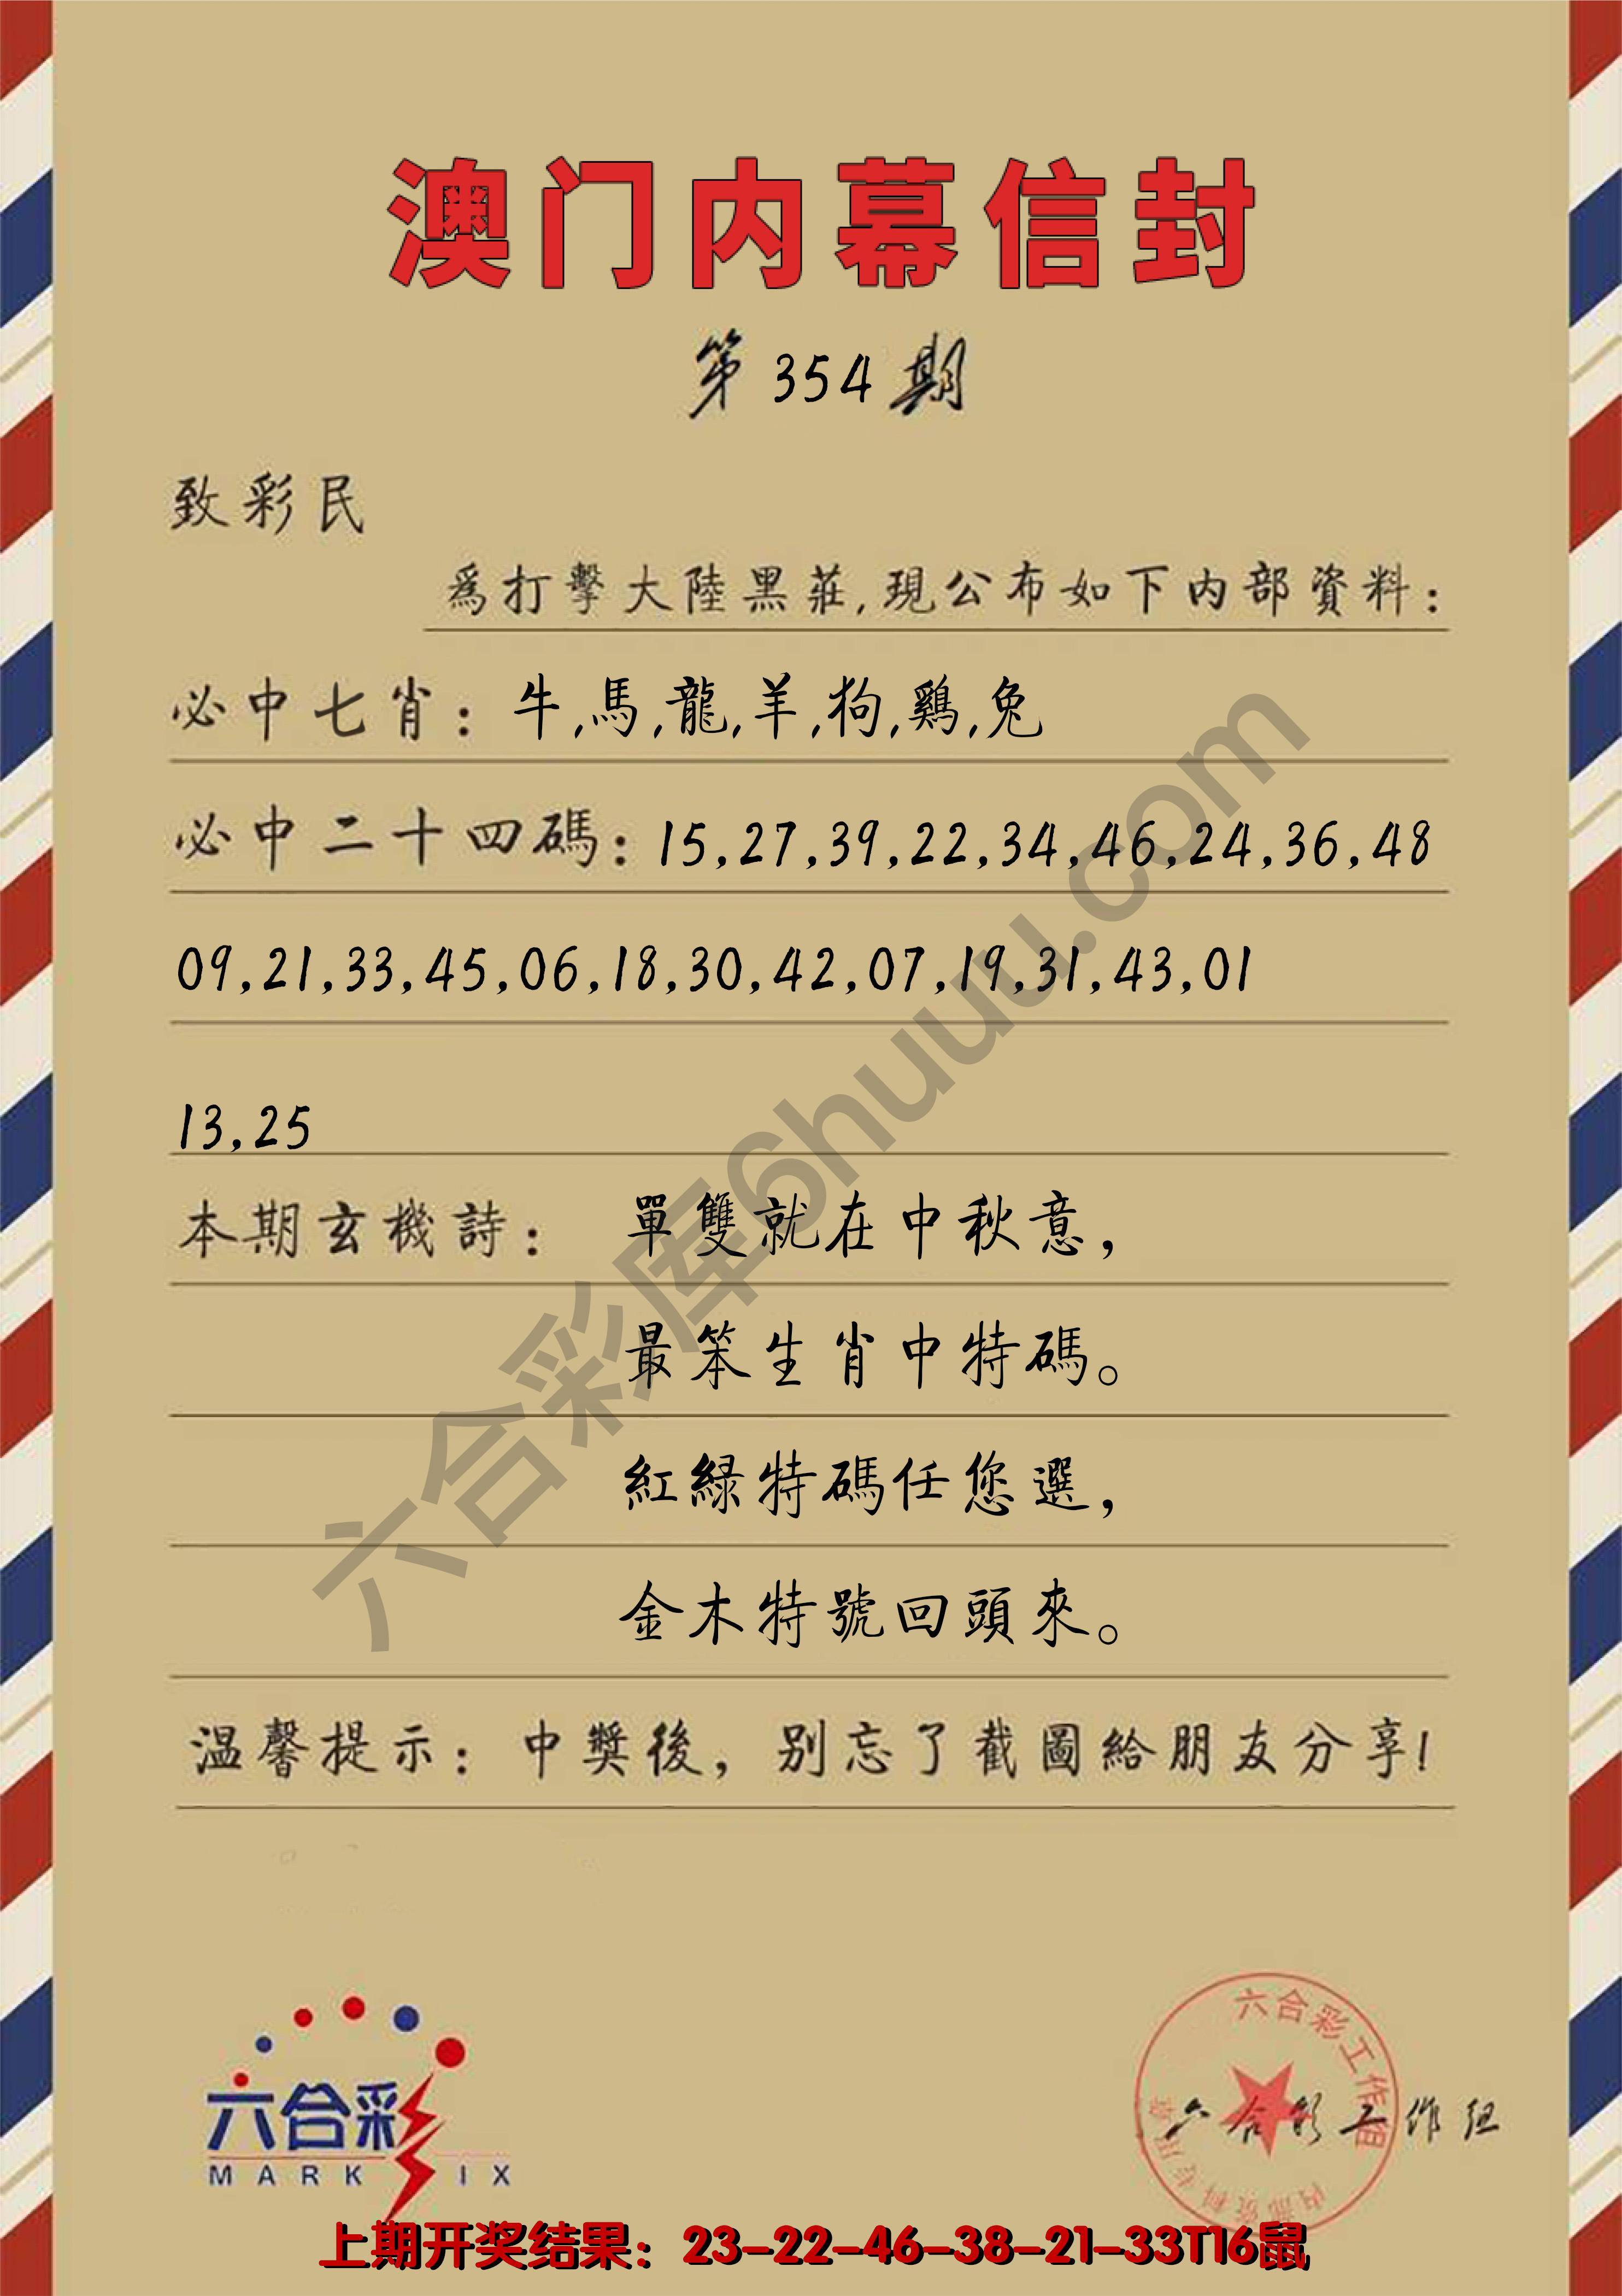 澳门内幕信封
第354期
致彩民
爲打擊大陸黑莊,現公布如下内部資料:
必中七肖: 牛,馬,龍,羊,狗,鷄,兔
必中二十四碼: 15,27,39,22,34,46,24,36,48
09,21,33,45,06,18,30,42,07,19,31,43,01
13,25
本期玄機詩: 單雙就在中秋意,
最笨生肖中特碼。
紅緑特碼任您選,
金木特號回頭來。
温馨提示: 中獎後, 别忘了截圖給朋友分享!
六合彩库6huuu.com
六合彩
MARK IX
六合彩工作组
内部资料专用章
六合彩工作组
上期开奖结果: 23-22-46-38-21-33T16鼠